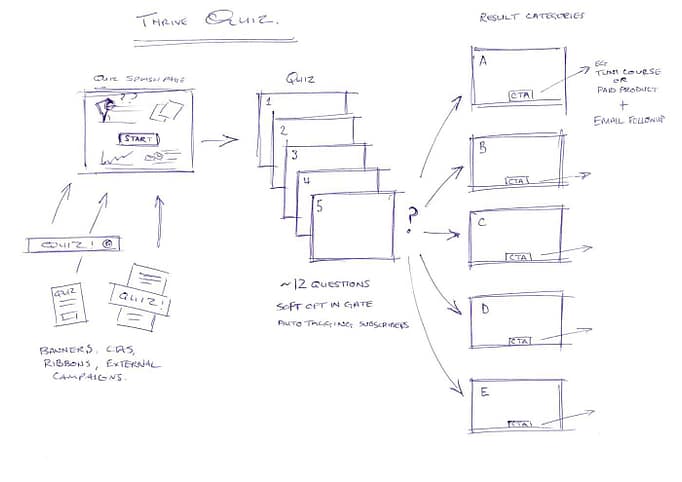 THRIVE QUIZ.
RESULT CATEGORIES
QUIZ SPLASH PAGE
??
START
QUIZ
1
2
3
4
5
?
A
CTA
EG
TUAM COURSE
OR
PAID PRODUCT
+
EMAIL FOLLOWUP
B
CTA
C
CTA
D
CTA
E
CTA
QUIZ!
QUIZ
QUIZ!
BANNERS, CTAS,
RIBBONS, EXTERNAL
CAMPAIGNS.
~12 QUESTIONS
SOFT OPT IN GATE
AUTO TAGGING SUBSCRIBERS